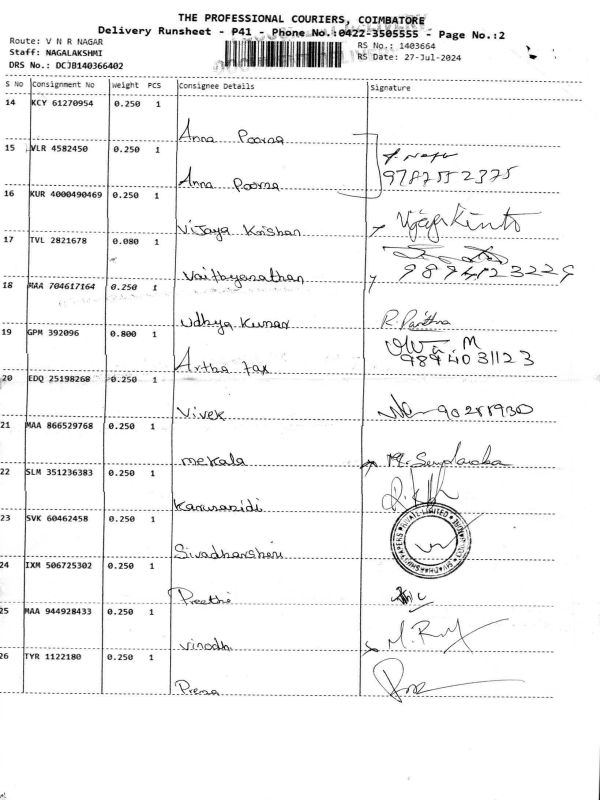 THE PROFESSIONAL COURIERS, COIMBATORE
Delivery Runsheet - P41 - Phone No.:0422-3505555 - Page No.:2
Route: V N R NAGAR RS No.: 1403664
Staff: NAGALAKSHMI RS Date: 27-Jul-2024
DRS No.: DCJB140366402
S No Consignment No Weight PCS Consignee Details Signature
14 KCY 61270954 0.250 1
Anna Poorna
15 VLR 4582450 0.250 1
9787552375
Anna Poorna
16 KUR 4000490469 0.250 1
Vijaya Krishan
17 TVL 2821678 0.080 1
9894123229
Vaithyanathan
18 MAA 704617164 0.250 1
Udhya Kumar R. Pavithra
19 GPM 392096 0.800 1
9894031123
Artha tax
20 EDQ 25198268 0.250 1
Vivek
21 MAA 866529768 0.250 1
mekala
22 SLM 351236383 0.250 1
Karunanidi
23 SVK 60462458 0.250 1
Sivadharshini
24 IXM 506725302 0.250 1
Preethi
25 MAA 944928433 0.250 1
Vinodh
26 TYR 1122180 0.250 1
Prena